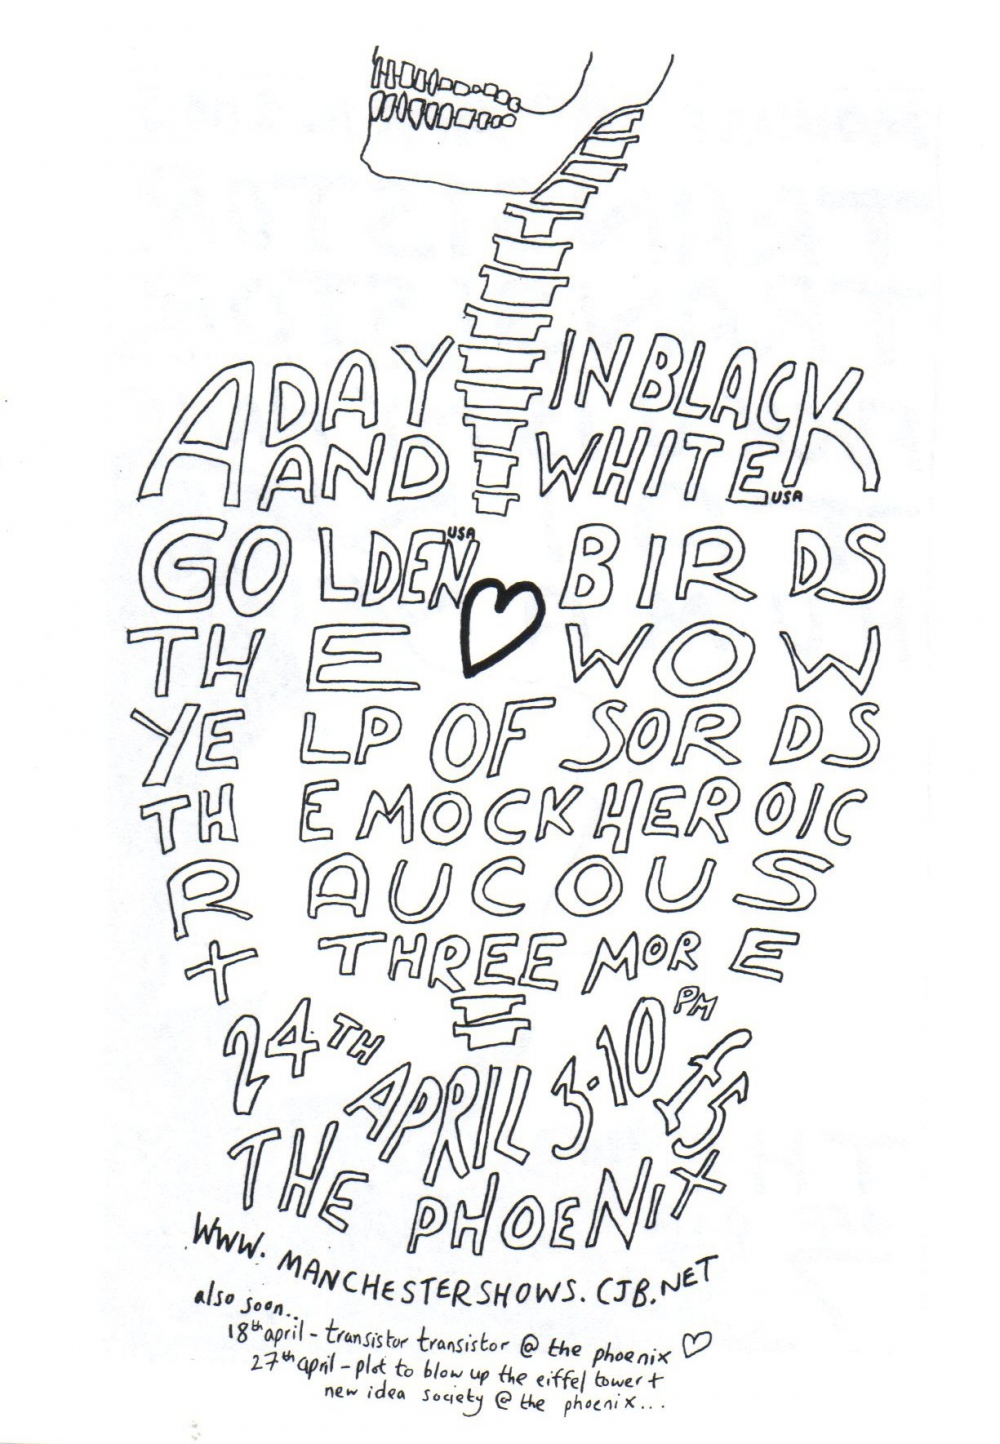 A DAY IN BLACK
AND WHITE USA
GOLDEN USA BIRDS
THE WOW
YELP OF SORDS
THE MOCK HEROIC
RAUCOUS
+ THREE MORE
24TH APRIL 3-10PM £5
THE PHOENIX
WWW.MANCHESTERSHOWS.CJB.NET
also soon..
18th april - transistor transistor @ the phoenix
27th april - plot to blow up the eiffel tower +
new idea society @ the phoenix...